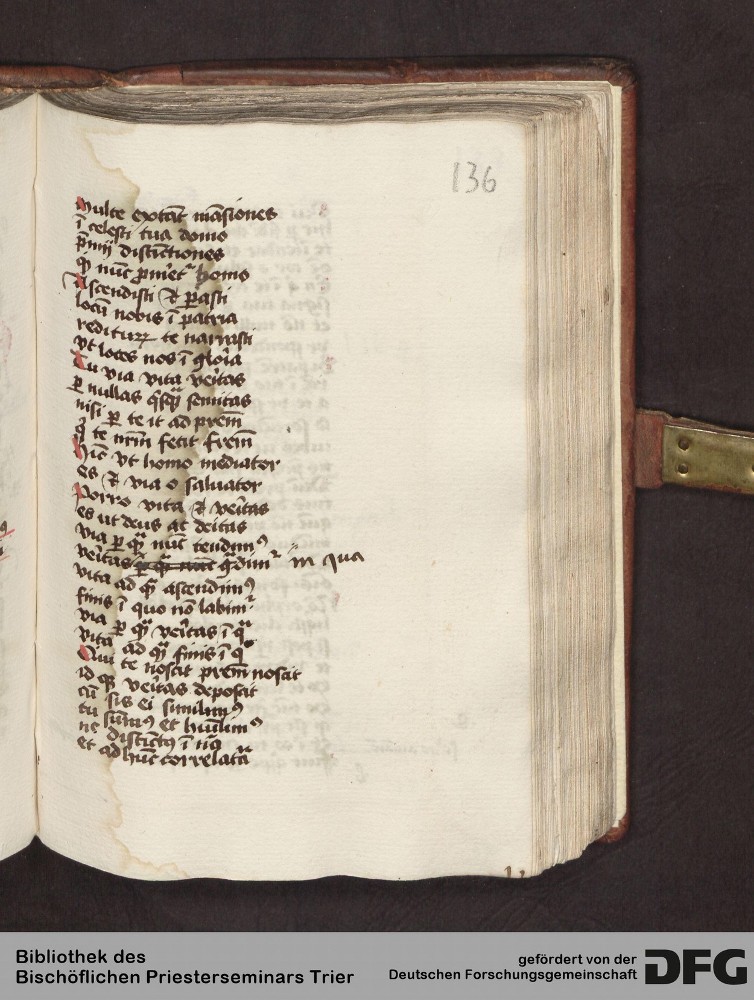 136
Multe extāt māsiones
ī celesti tua domo
p̄mij distīctiones
qͥ nūc ꝓmet᷑ homo
Ascendisti ⁊ ꝑasti
locū nobis ī patria
rediturꝫ te narrasti
vt loces nos ī gloīa
Tu via vita veītas
ꝑ nullas semitas
nisi ꝑ te it ad prēm
qͥ te nrm̄ fecit frēm
Hīc vt homo mediator
es ⁊ via o saluator
Porro vita ⁊ veītas
es ut deus ac deitas
via ꝑ quā nūc tendimꝰ
veītas ꝑ quā nūc in qua
vita ad quā ascendimꝰ
finis ī quo nō labim᷑
via ꝑ quā veītas ī qᵃ
vita ad quā finis ī qͦ
Qui te noscit prēm noscit
id qͥ veītas deposcit
cū sis ei similimꝰ
tu sumꝰ et hūilimꝰ
nc distīctꝰ ī
et ad huc correlatā
Bibliothek des
Bischöflichen Priesterseminars Trier
gefördert von der
Deutschen Forschungsgemeinschaft
DFG